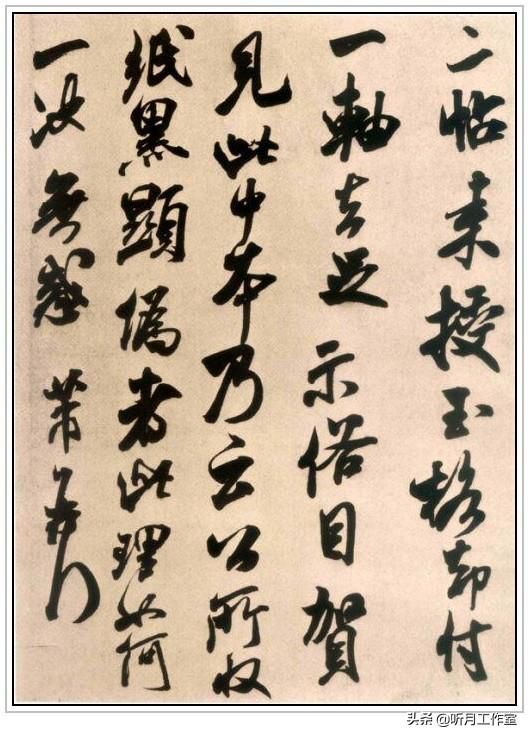 二帖來授玉格却付
一軸去足示俗目賀
見此中本乃云公所收
紙黑顯偽者此理如何
一決無惑 芾頓首
头条 @听月工作室